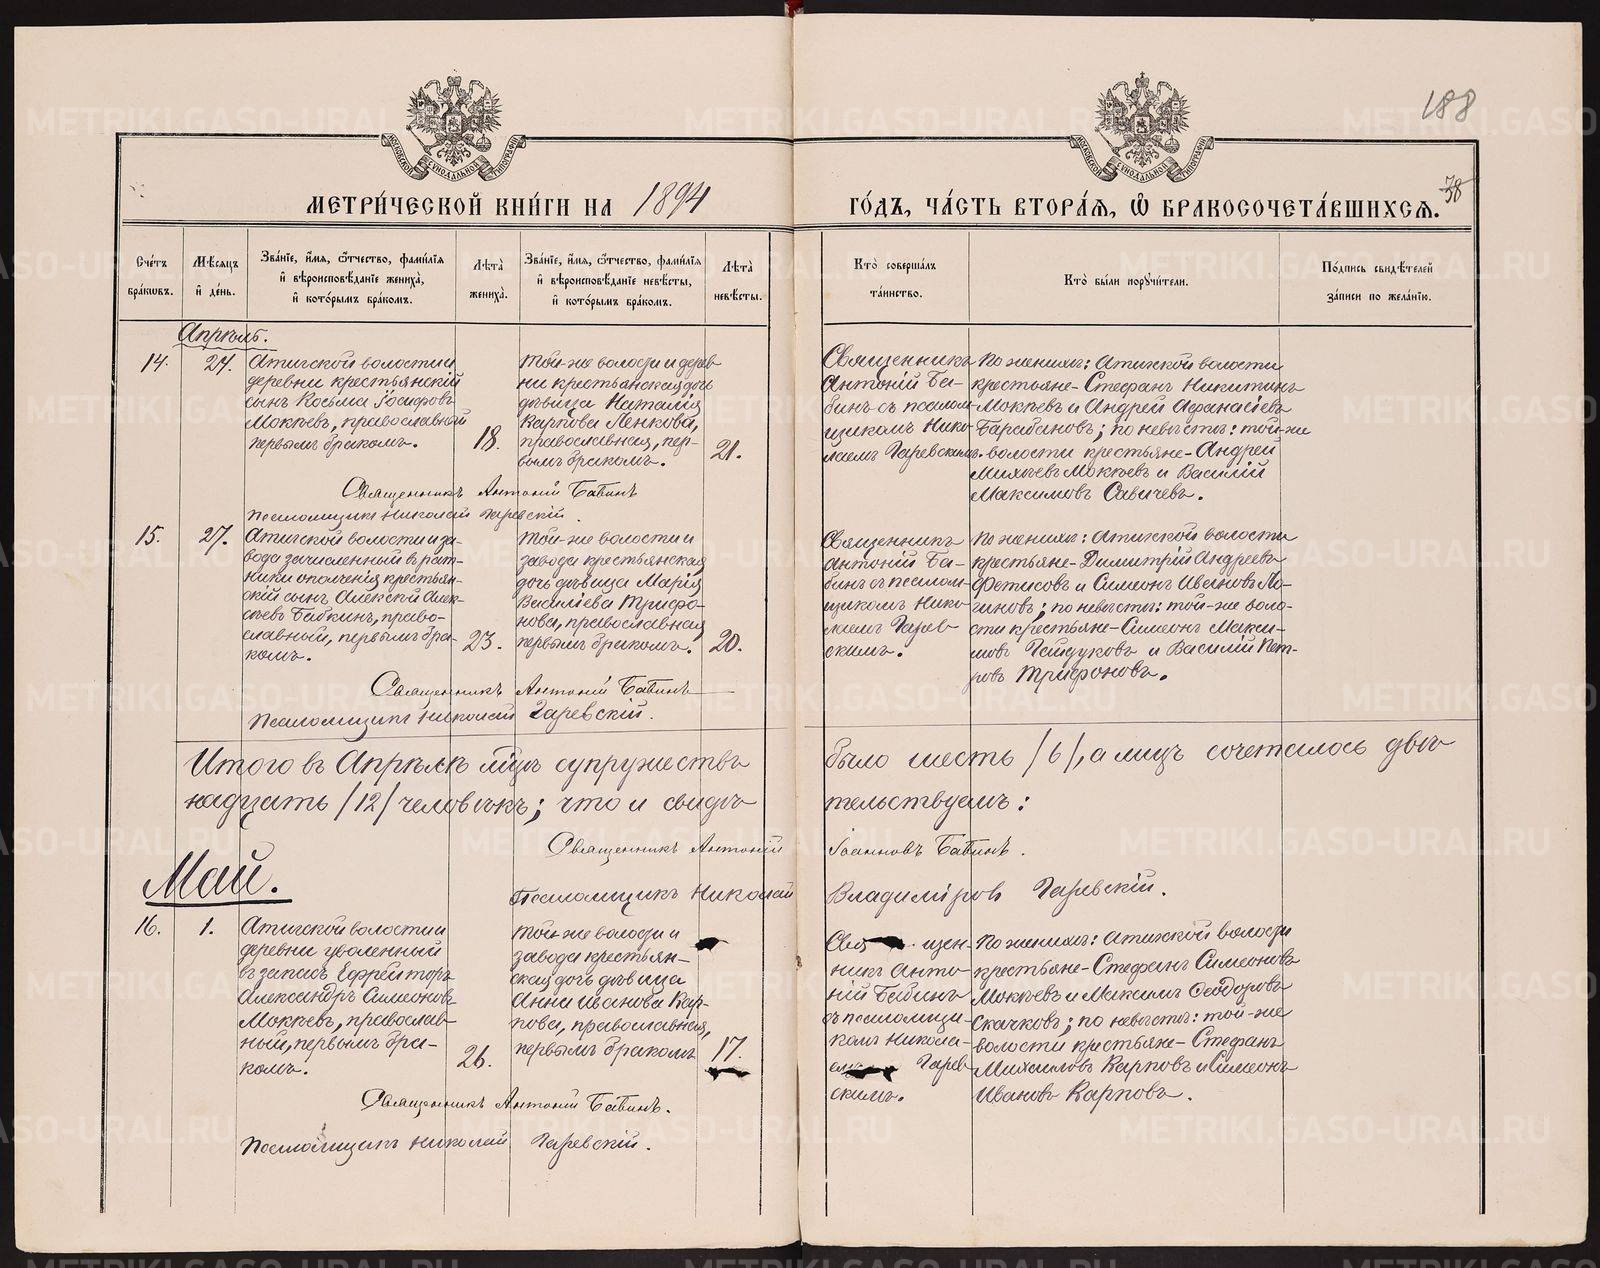 188
38
МОСКОВСКОЙ СѴНОДАЛЬНОЙ ТИПОГРАФІИ
МОСКОВСКОЙ СѴНОДАЛЬНОЙ ТИПОГРАФІИ
МЕТРИ́ЧЕСКОЙ КНИ́ГИ НА 1894 ГО́ДЪ, ЧА́СТЬ ВТОРА́Я, Ѡ҆ БРАКОСОЧЕТА́ВШИХСЯ.
Сче́тъ бра́кѡвъ.
Мѣ́сяцъ и҆ де́нь.
Зва́нїе, и҆́мя, ѻ҆́тчество, фами́лїя и҆ вѣроисповѣ́данїе жениха̀, и҆ кото́рымъ бра́комъ.
Лѣта̀ жениха̀.
Зва́нїе, и҆́мя, ѻ҆́тчество, фами́лїя и҆ вѣроисповѣ́данїе невѣ́сты, и҆ кото́рымъ бра́комъ.
Лѣта̀ невѣ́сты.
Кто̀ соверша́лъ та́инство.
Кто̀ бы́ли порꙋчи́тели.
По́дпись свидѣ́телей за́писи по жела́нїю.
Апрѣль.
14.
27.
Атигской волости и
деревни крестьянскій
сынъ Косьма Іосифовъ
Мокѣевъ, православный
первымъ бракомъ.
18.
Той-же волости и дерев
ни крестьянская дочь
дѣвица Наталія
Карпова Пенкова,
православная, пер-
вымъ бракомъ.
21.
Священникъ
Антоній Ба-
бинъ съ псалом
щикомъ Нико
лаемъ Гаревскимъ.
По женихѣ: Атигской волости
крестьяне- Стефанъ Никитинъ
Мокѣевъ и Андрей Афанасіевъ
Барабановъ; по невѣстѣ: той-же
волости крестьяне- Андрей
Михѣевъ Мокѣевъ и Василій
Максимовъ Савичевъ.
Священникъ Антоній Бабинъ
Псаломщикъ Николай Гаревскій.
15.
27.
Атигской волости и за-
вода зачисленный въ рат-
ники ополченія крестьян-
скій сынъ Алексѣй Алек-
сѣевъ Бабкинъ, право-
славный, первымъ бра-
комъ.
23.
Той-же волости и
завода крестьянская
дочь дѣвица Марія
Василіева Трифо-
нова, православная
первымъ бракомъ.
20.
Священникъ
Антоній Ба-
бинъ съ псалом-
щикомъ Нико-
лаемъ Гарев
скимъ.
По женихѣ: Атигской волости
крестьяне- Димитрій Андреевъ
Фетисовъ и Симеонъ Ивановъ Ло-
гиновъ; по невѣстѣ: той-же воло-
сти крестьяне- Симеонъ Макси-
мовъ Гайдуковъ и Василій Пет-
ровъ Трифоновъ.
Священникъ Антоній Бабинъ
Псаломщикъ Николай Гаревскій.
Итого въ Апрѣлѣ мѣцѣ супружествъ было шесть /6/, а лицъ сочеталось двѣ
надцать /12/ человѣкъ; что и свидѣ тельствуемъ:
Священникъ Антоній Іоанновъ Бабинъ.
Псаломщикъ Николай Владиміровъ Гаревскій.
Май.
16.
1.
Атигской волости и
деревни уволенный
въ запасъ Ефрейторъ
Александръ Симеоновъ
Мокѣевъ, православ-
ный, первымъ бра-
комъ.
26.
Той-же волости и
завода крестьян-
ская дочь дѣвица
Анна Иванова Кар-
пова, православная,
первымъ бракомъ
17.
Свя щен-
никъ Анто-
ній Бабинъ
съ псаломщи-
комъ Никола-
емъ Гарев-
скимъ.
По женихѣ: Атигской волости
крестьяне- Стефанъ Симеоновъ
Мокѣевъ и Максимъ Ѳеодоровъ
Скачковъ; по невѣстѣ: той-же
волости крестьяне- Стефанъ
Михаиловъ Карповъ и Симеонъ
Ивановъ Карповъ.
Священникъ Антоній Бабинъ.
Псаломщикъ Николай Гаревскій.
METRIKI.GASO-URAL.RU